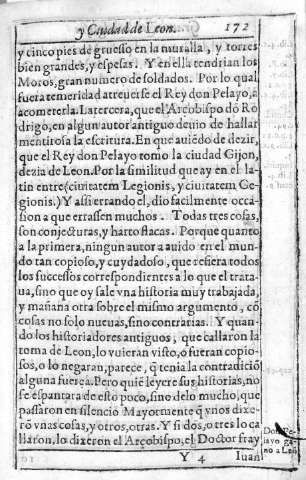 y Ciudad de Leon. 172
y cinco pies de gruesso en la muralla, y torres
bien grandes, y espesas. Y en ella tendrian los
Moros, gran numero de soldados. Por lo qual
fuera temeridad atreuerse el Rey don Pelayo, a
acometerla. La tercera, que el Arçobispo dõ Ro
drigo, en algun autor antiguo deuio de hallar
mentirosa la escritura. En que auiẽdo de dezir,
que el Rey don Pelayo tomo la ciudad Gijon,
dezia de Leon. Por la similitud que ay en el la
tin entre (ciuitatem Legionis, y ciuitatem Ge-
gionis.) Y assi errando el, dio facilmente occa-
sion a que errassen muchos. Todas tres cosas,
son conjecturas, y harto flacas. Porque quanto
a la primera, ningun autor a auido en el mun-
do tan copioso, y cuydadoso, que refiera todos
los successos correspondientes a lo que el trata-
ua, sino que oy sale vna historia muy trabajada,
y mañana otra sobre el mismo argumento, cõ
cosas no solo nueuas, sino contrarias. Y quan-
do los historiadores antiguos, que callaron la
toma de Leon, lo vuieran visto, o fueran copio-
sos, o lo negaran, parece, q̃ tenia la contradiciõ
alguna fuerça. Pero quiẽ leyere sus historias, no
se espantara de esto poco, sino delo mucho, que
passaron en silencio Mayormente q̃ vnos dixe-
rõ vnas cosas, y otros, otras. Y si dos, o tres lo ca
llaron, lo dixeron el Arçobispo, el Doctor fray
Y 4 Iuan
Don Pe-
layo ga-
no a Leõ